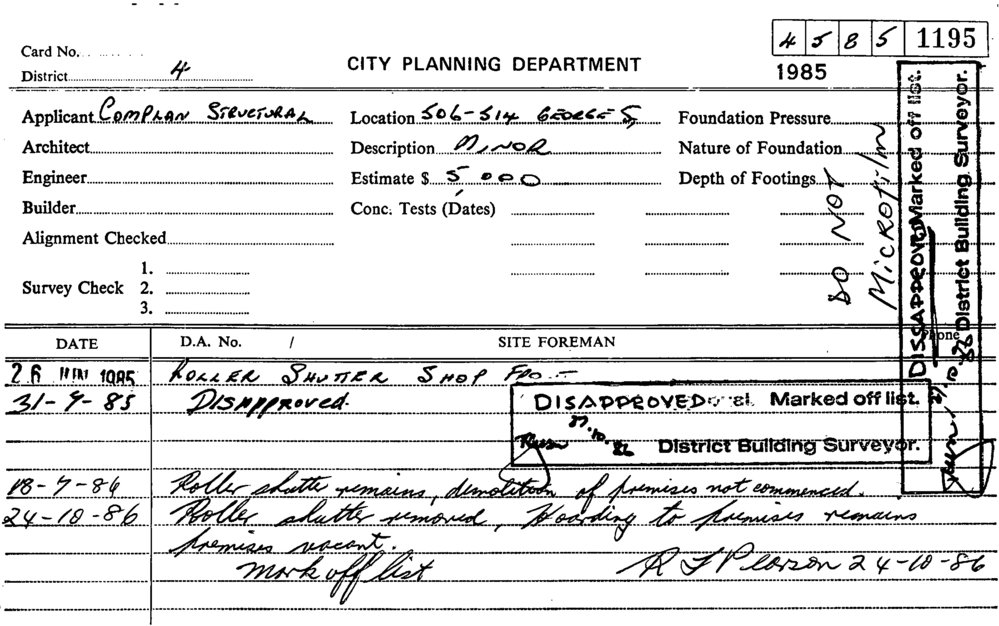 4 5 8 5 1195
Card No.
District 4
CITY PLANNING DEPARTMENT
1985
Applicant COMPLAN STRUCTURAL
Location 506-514 GEORGE S
Foundation Pressure
Architect
Description MINOR
Nature of Foundation
Engineer
Estimate $ 5,000
Depth of Footings
Builder
Conc. Tests (Dates)
Alignment Checked
Survey Check
1.
2.
3.
DO NOT
MICROFILM
DISSAPPROVED Marked off list.
27.10.86 District Building Surveyor.
DATE
D.A. No. /
SITE FOREMAN
Phone
26 JUN 1985 ROLLER SHUTTER SHOP
31-7-85 DISAPPROVED.
DISAPPROVED Marked off list.
27.10.86
District Building Surveyor.
18-7-86 Roller shutter remains, demolition of premises not commenced.
24-10-86 Roller shutter removed, Hoarding to premises remains
premises vacant.
Mark off list R F Pearson 24-10-86